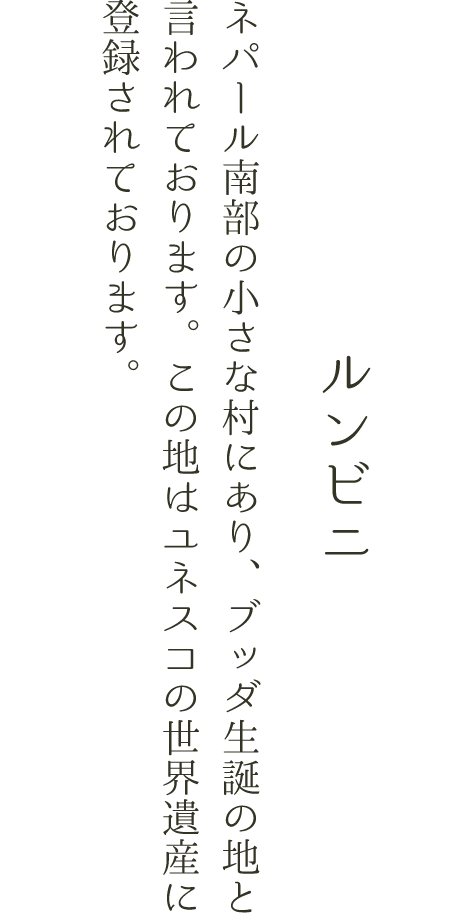 ルンビニ
ネパール南部の小さな村にあり、ブッダ生誕の地と
言われております。この地はユネスコの世界遺産に
登録されております。